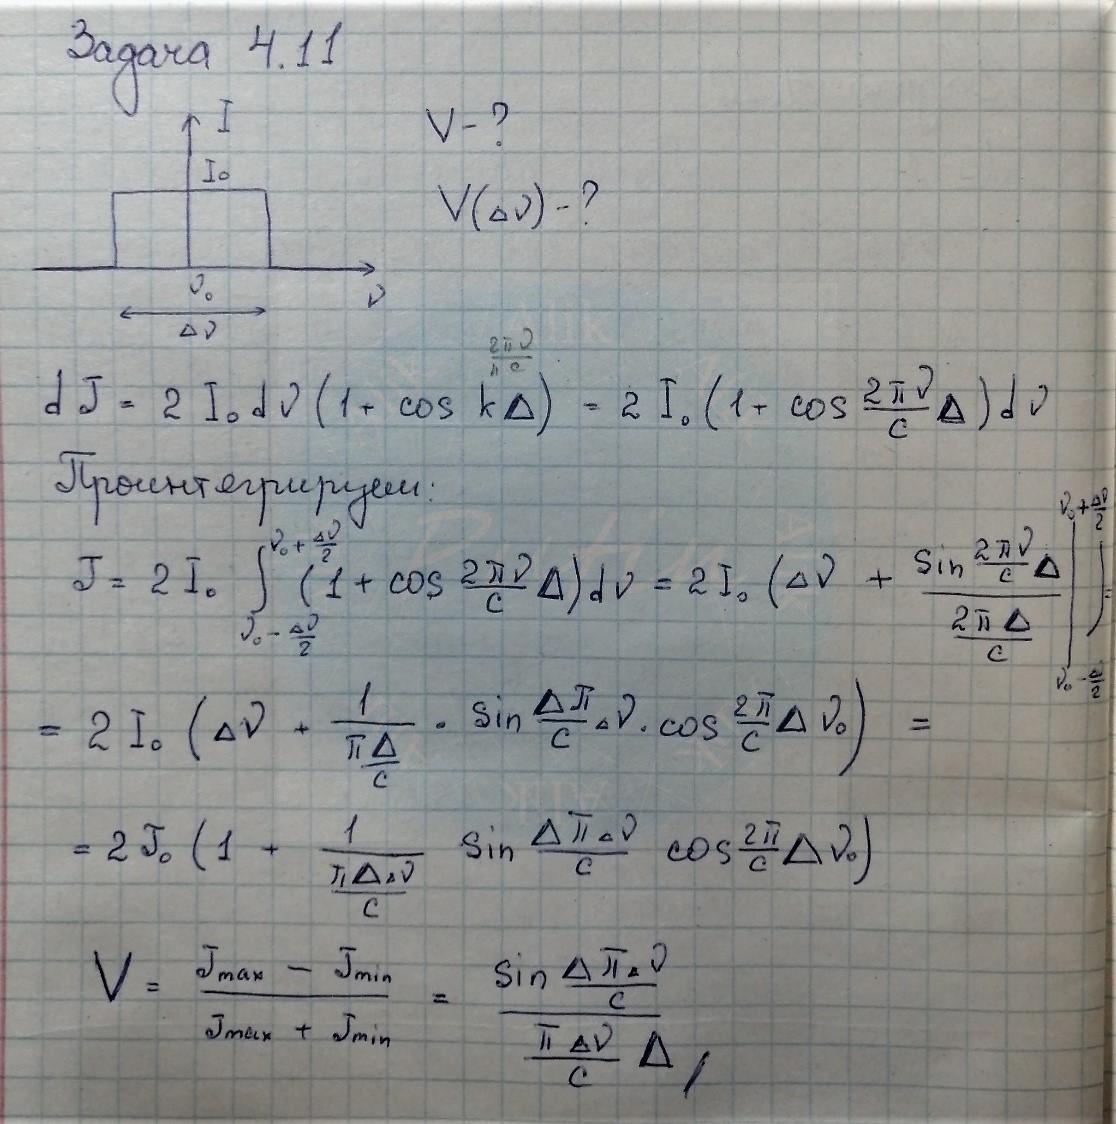 Задача 4.11
I
I₀
ν₀
ν
Δν
V - ?
V(Δν) - ?
2πν
c
dJ = 2 I₀ dν (1 + cos kΔ) = 2 I₀ (1 + cos 2πν/c Δ) dν
Проинтегрируем:
J = 2 I₀ ∫_{ν₀ - Δν/2}^{ν₀ + Δν/2} (1 + cos 2πν/c Δ) dν = 2 I₀ (Δν + (sin 2πν/c Δ)/(2πΔ/c) |_{ν₀ - Δ/2}^{ν₀ + Δν/2}) =
= 2 I₀ (Δν + 1/(πΔ/c) · sin Δπ/c Δν · cos 2π/c Δ ν₀) =
= 2 J₀ (1 + 1/(πΔΔν/c) sin ΔπΔν/c cos 2π/c Δ ν₀)
V = (Jmax - Jmin)/(Jmax + Jmin) = (sin ΔπΔν/c)/(πΔν/c Δ) ,